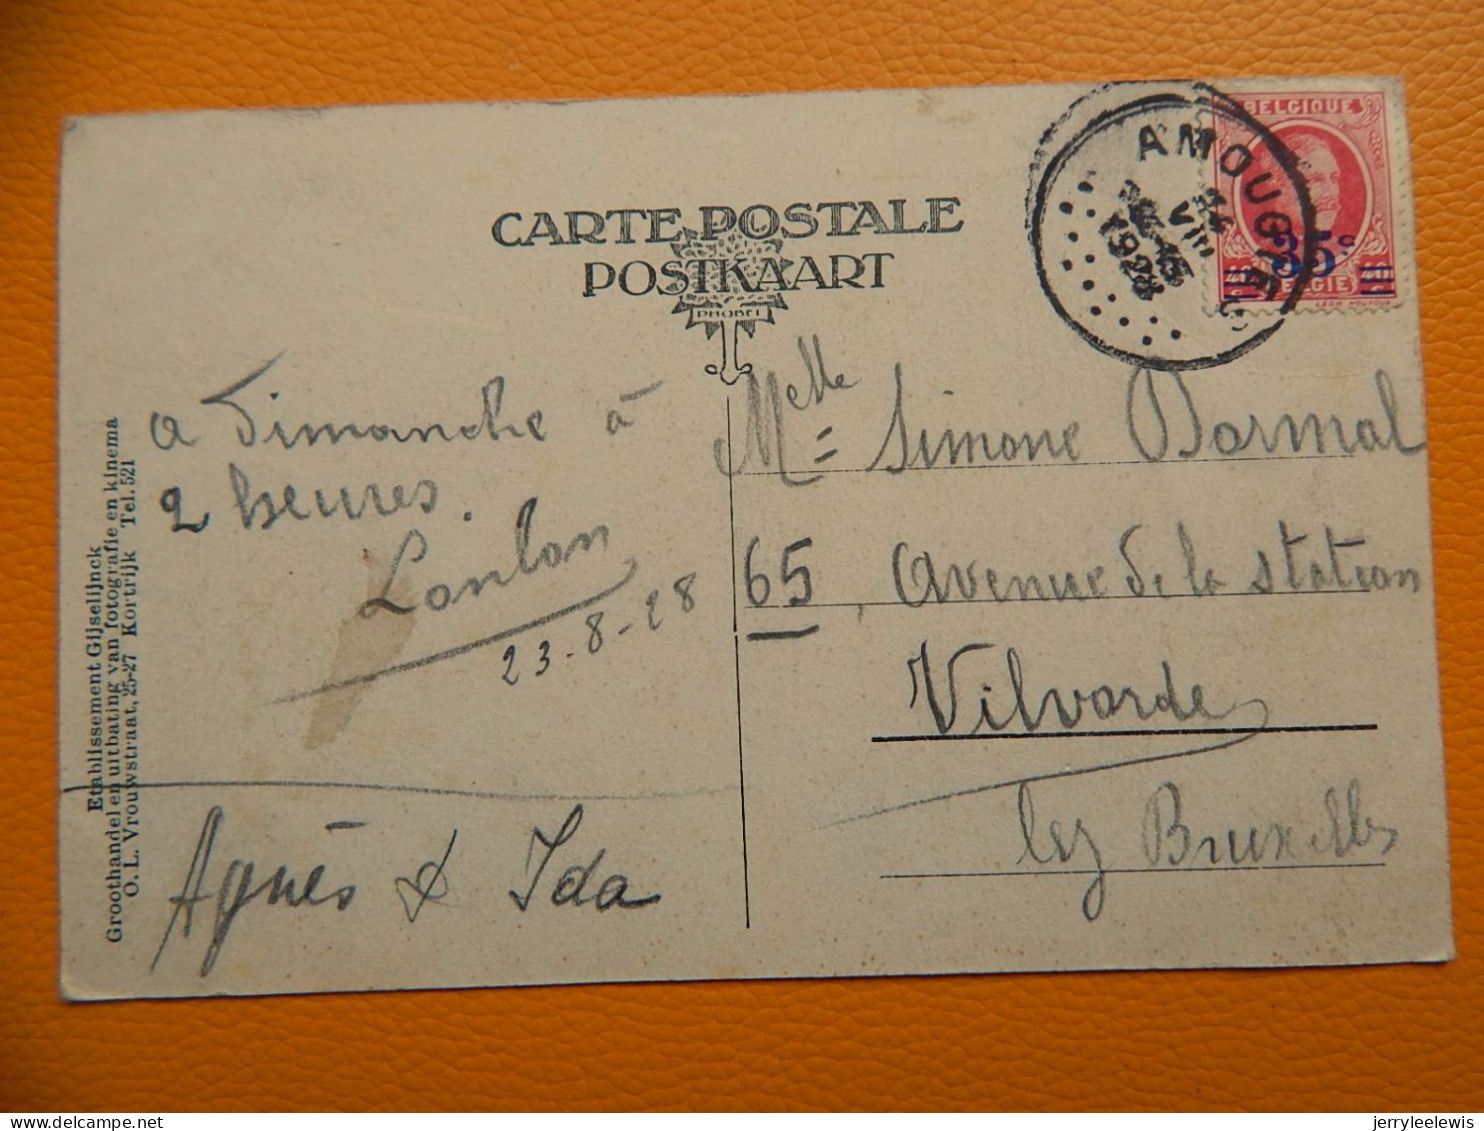 CARTE POSTALE
POSTKAART
PHOBEL
BELGIQUE
35c
BELGIË
AMOUGIES
VIII
1928
a Dimanche à
2 heures.
23-8-28
Agnès & Ida
Melle Simone Dormal
65, Avenue de la station
Vilvorde
lez Bruxelles
Etablissement Gijselijnck
Groothandel en uitbating van fotografie en kinema
O. L. Vrouwstraat, 25-27 Kortrijk Tel. 521
delcampe.net
jerryleelewis